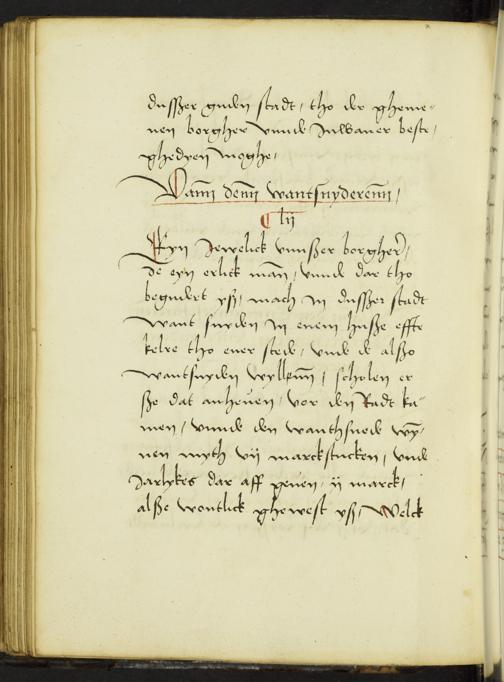 dussßer guden stadt, tho der gheme-
nen borgher vnnde Inwaner beste,
ghedyen moghe,
Vann denn wantsnyderenn,
lij
Eyn Jewelick vnnßer borgher,
de eyn erlick man, vnnde dar tho
begudert ysß, mach in dussßer stadt
want snyden in enem husße effte
kelre tho ener stede, vnde de alßo
wantsnyden wyllenn, scholen er
ße dat anheuen, vor den Radt ka-
men, vnnde den wanthsnede wÿ-
nen myth vij marckstucken, vnde
Jarlykes dar aff geuen, ij marck,
alße wontlick ghewest ysß, Welck